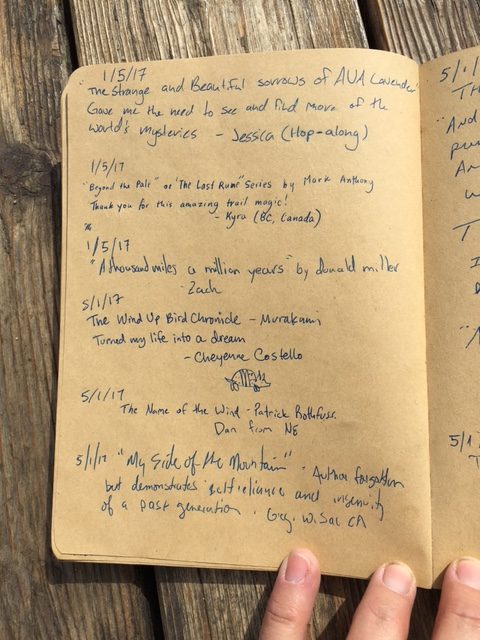 1/5/17
"The Strange and Beautiful sorrows of AVA Lavender"
Gave me the need to see and find more of the
world's mysteries - Jessica (Hop-along)
1/5/17
"Beyond the Pale" or "The Last Rune" Series by Mark Anthony
Thank you for this amazing trail magic!
- Kyra (BC, Canada)
1/5/17
"A thousand miles a million years" by donald miller
Zach
5/1/17
The Wind Up Bird Chronicle - Murakami
Turned my life into a dream
- Cheyenne Costello
5/1/17
The Name of the Wind - Patrick Rothfuss
Dan from NE
5/1/17 "My Side of the Mountain" - Author forgotten
but demonstrates self reliance and ingenuity
of a past generation. Greg, W. Sac CA
5/1/
Th
"And
pu
An
w
T
I
D
"A
5/1
T